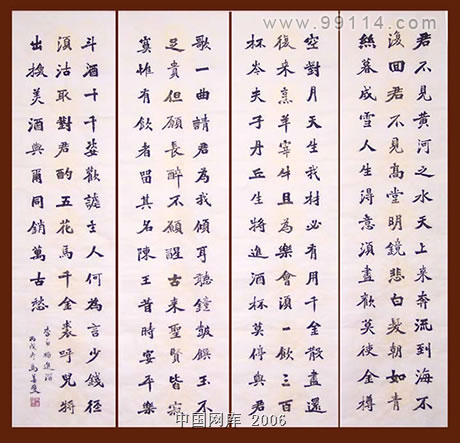 www.99114.com
君不見黃河之水天上來奔流到海不
復回君不見高堂明鏡悲白髮朝如青
絲暮成雪人生得意須盡歡莫使金樽
空對月天生我材必有用千金散盡還
復来烹羊宰牛且為樂會須一飲三百
杯岑夫子丹丘生將進酒杯莫停與君
歌一曲請君為我傾耳聽鐘鼓饌玉不
足貴但願長醉不願醒古来聖賢皆寂
寞惟有飲者留其名陳王昔時宴平樂
斗酒十千恣歡謔主人何為言少錢徑
須沽取對君酌五花馬千金裘呼兒將
出換美酒與爾同銷萬古愁
李白將進酒
丙戌年馬
中国网库 2006